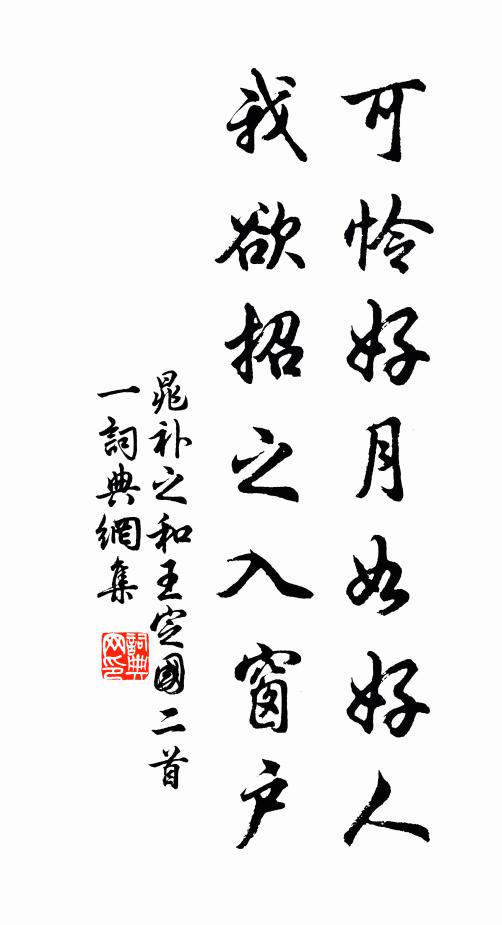 可怜好月如好人
我欲招之入窗户
晁补之和王定國二首
一詞典網集
詞典网印